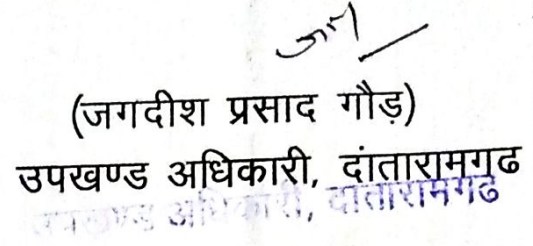 (जगदीश प्रसाद गौड़)
उपखण्ड अधिकारी, दांतारामगढ
उपखण्ड अधिकारी, दांतारामगढ